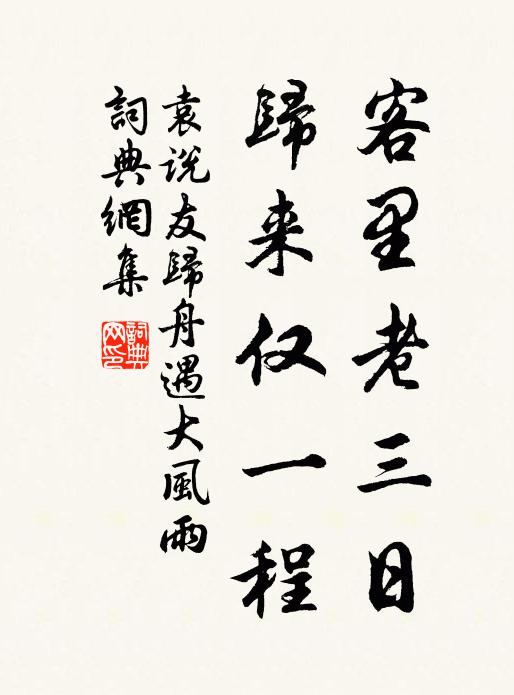 客里老三日
歸来仅一程
袁说友歸舟遇大風雨
詞典網集
詞典
网印